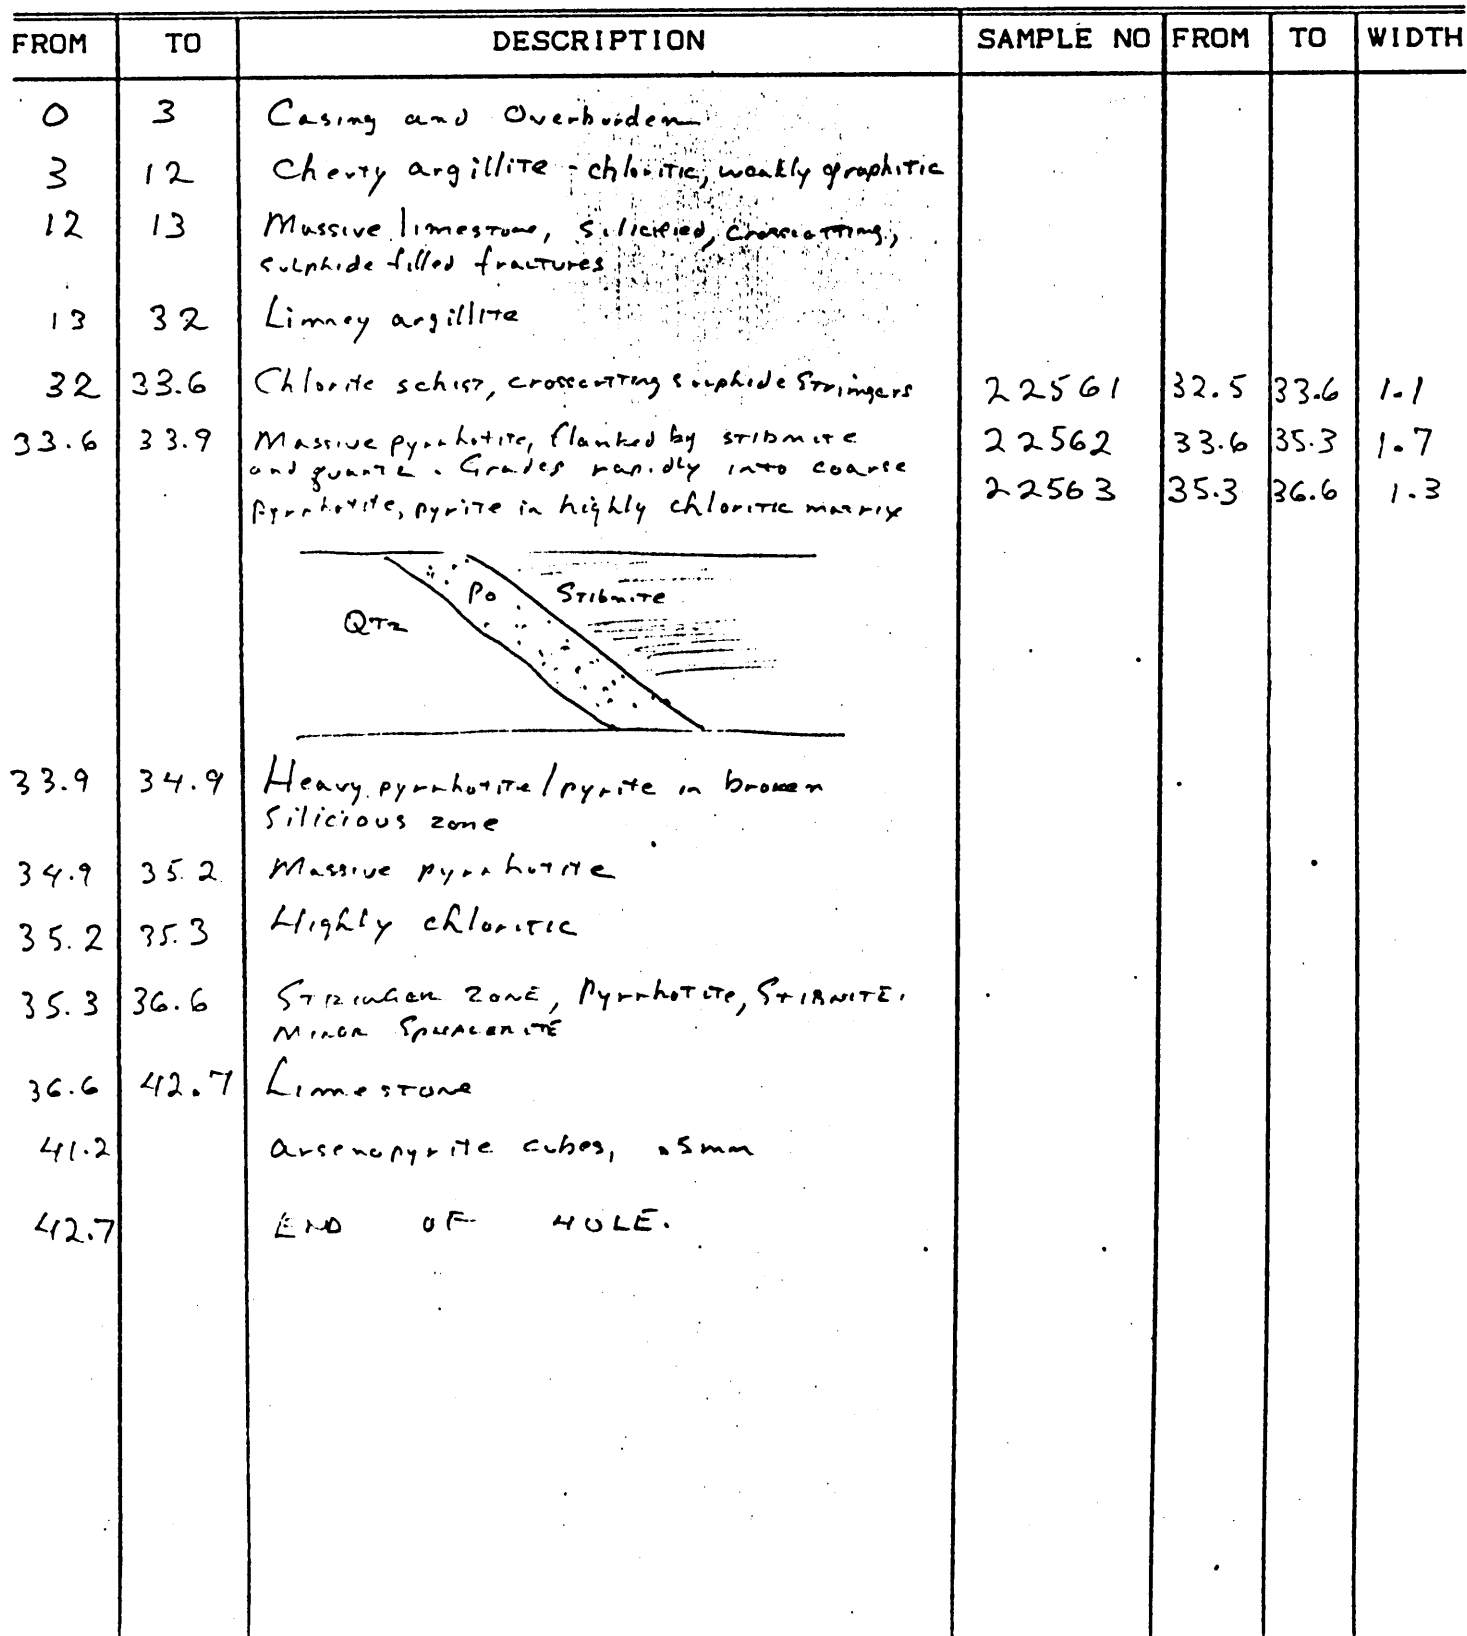 FROM TO DESCRIPTION SAMPLE NO FROM TO WIDTH
0 3 Casing and Overburden
3 12 Cherty argillite - chloritic, weakly graphitic
12 13 Massive limestone, silicified, crosscutting,
sulphide filled fractures
13 32 Limney argillite
32 33.6 Chlorite schist, crosscutting sulphide stringers 22561 32.5 33.6 1.1
33.6 33.9 Massive pyrrhotite, flanked by stibnite 22562 33.6 35.3 1.7
and quartz. Grades rapidly into coarse
pyrrhotite, pyrite in highly chloritic matrix 22563 35.3 36.6 1.3
Po Stibnite
QTZ
33.9 34.9 Heavy pyrrhotite/pyrite in broken
Silicious zone
34.9 35.2 Massive pyrrhotite
35.2 35.3 Highly chloritic
35.3 36.6 STRINGER ZONE, Pyrrhotite, STIBNITE.
MINOR SPHALERITE
36.6 42.7 Limestone
41.2 arsenopyrite cubes, .5mm
42.7 END OF HOLE.